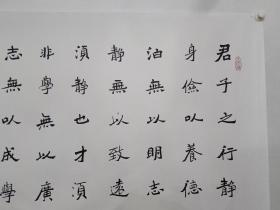 君子之行静
身儉以養德
泊無以明志
静無以致遠
須静也才須
非學無以廣
志無以成學